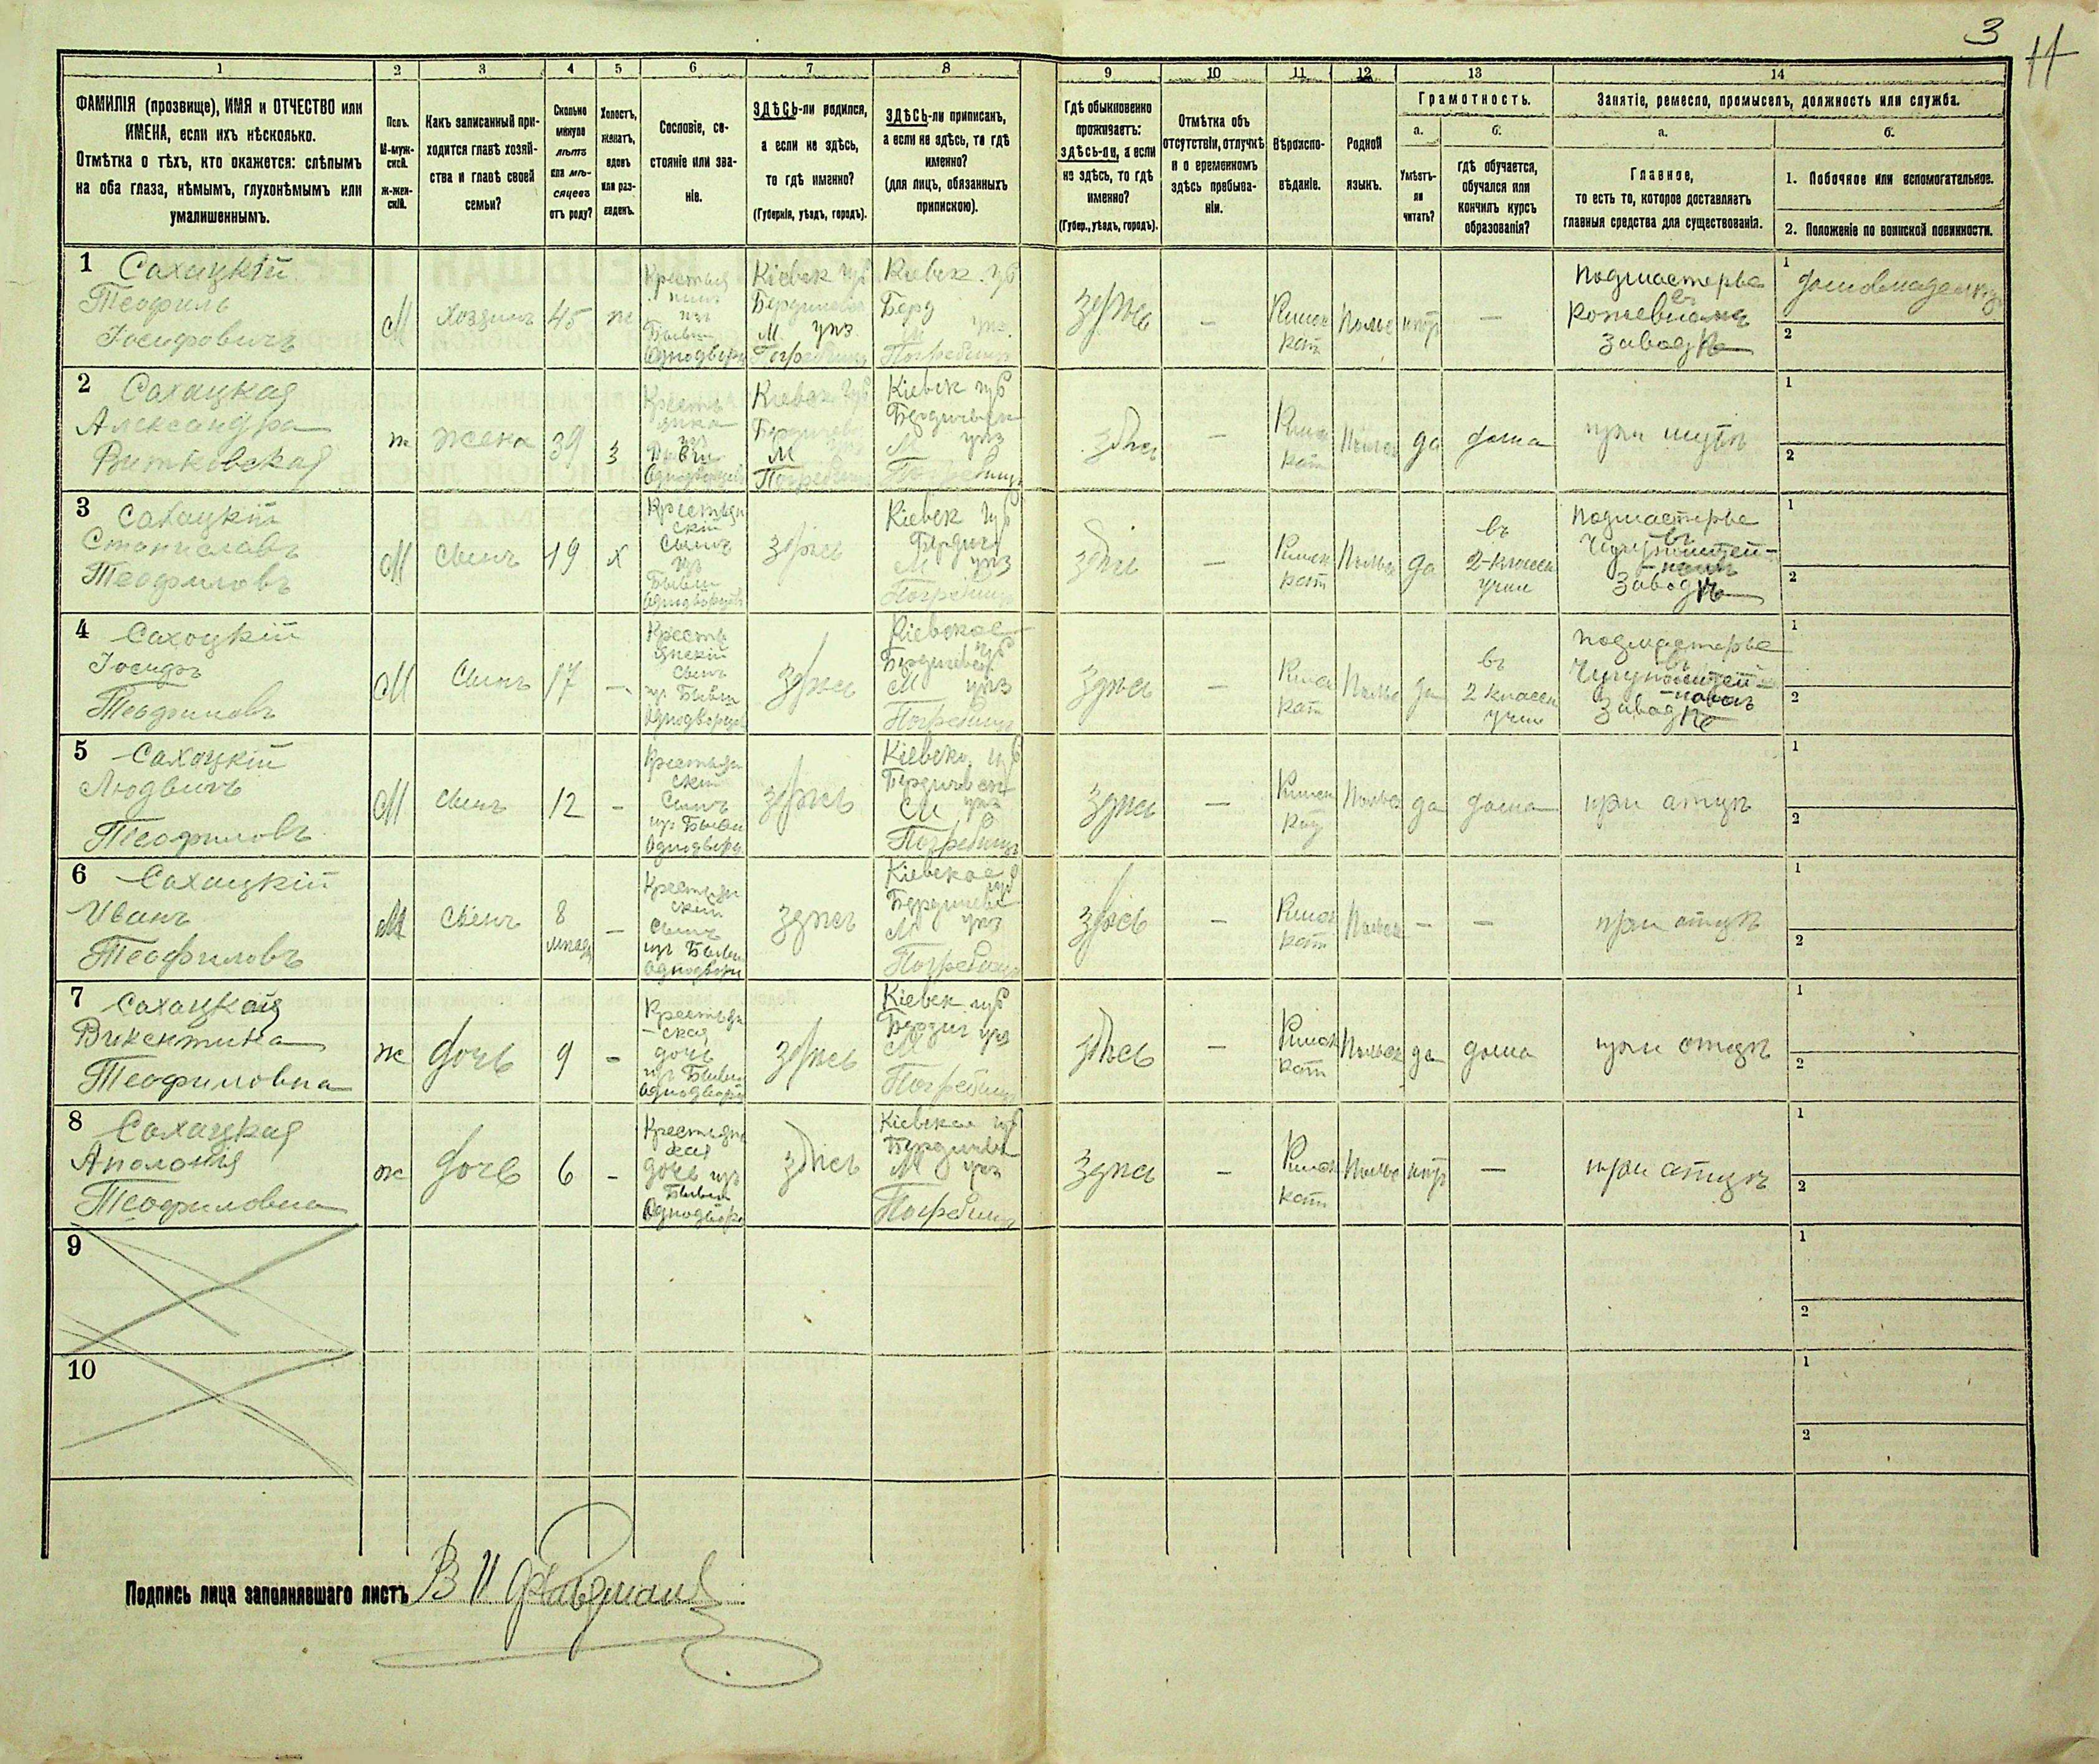 3
11
1
2
3
4
5
6
7
8
9
10
11
12
13
14
ФАМИЛІЯ (прозвище), ИМЯ и ОТЧЕСТВО или
ИМЕНА, если ихъ нѣсколько.
Отмѣтка о тѣхъ, кто окажется: слѣпымъ
на оба глаза, нѣмымъ, глухонѣмымъ или
умалишеннымъ.
Полъ.
М-муж-
ской.
Ж-жен-
скій.
Какъ записанный при-
ходится главѣ хозяй-
ства и главѣ своей
семьи?
Сколько
минуло
лѣтъ
или мѣ-
сяцевъ
отъ роду?
Холостъ,
женатъ,
вдовъ
или раз-
веденъ.
Сословіе, со-
стояніе или зва-
ніе.
ЗДѢСЬ-ли родился,
а если не здѣсь,
то гдѣ именно?
(Губернія, уѣздъ, городъ).
ЗДѢСЬ-ли приписанъ,
а если не здѣсь, то гдѣ
именно?
(для лицъ, обязанныхъ
припискою).
Гдѣ обыкновенно
проживаетъ:
здѣсь-ли, а если
не здѣсь, то гдѣ
именно?
(Губер., уѣздъ, городъ).
Отмѣтка объ
отсутствіи, отлучкѣ
и о временномъ
здѣсь пребыва-
ніи.
Вѣроиспо-
вѣданіе.
Родной
языкъ.
Грамотность.
а.
б.
Умѣетъ-
ли
читать?
гдѣ обучается,
обучался или
кончилъ курсъ
образованія?
Занятіе, ремесло, промыселъ, должность или служба.
а.
б.
Главное,
то есть то, которое доставляетъ
главныя средства для существованія.
1. Побочное или вспомогательное.
2. Положеніе по воинской повинности.
1 Сахацкій
Теофиль
Іосифовичъ
М
хозяинъ
45
ж
Кіевск губ
М. уѣз
Погребищ
Кіевск. губ
Берд
М уѣз.
Погребищ
здѣсь
—
Римск
кат
Польс
нѣтъ
—
Подмастерье
въ
Кожевномъ
заводѣ
1
2
2 Сахацкая
Александра
Витковская
ж
жена
39
з
Кіевск губ
М
Погребищ
Кіевск губ
Бердичевск
М уѣз
Погребищ
здѣсь
—
Римск
кат
Польс
да
дома
при мужѣ
1
2
3 Сахацкій
Станиславъ
Теофиловъ
М
сынъ
19
х
Крестьян
скій
сынъ
изъ
Бывш
Однодворцевъ
здѣсь
Кіевск губ
Бердич
М уѣз
Погребищ
здѣсь
—
Римск
кат
Польс
да
въ
2-класс
учил
Подмастерье
въ
Чугунолитей-
номъ
заводѣ
1
2
4 Сахоцкій
Іосифъ
Теофиловъ
М
сынъ
17
—
Кресть
янскій
сынъ
изъ Бывш
Однодворцевъ
здѣсь
Кіевское
губ
Бердичевск
М уѣз
Погребищ
здѣсь
—
Римск
кат
Польс
да
въ
2 класс
учил
подмастерье
въ
Чугунолитей-
номъ
заводѣ
1
2
5 Сахоцкій
Людвигъ
Теофиловъ
М
сынъ
12
—
Крестьян
скій
сынъ
изъ Бывш
Однодвор
здѣсь
Кіевско губ
Бердичевск
М уѣз
Погребищ
здѣсь
—
Римск
кат
Польс
да
дома
при отцѣ
1
2
6 Сахацкій
Иванъ
Теофиловъ
М
сынъ
8
—
Крестьян
скій
сынъ
изъ Бывш
Однодворц
здѣсь
Кіевское
губ
Бердичевск
М уѣз
Погребищ
здѣсь
—
Римск
кат
Польск
—
—
при отцѣ
1
2
7 Сахацкая
Викентина
Теофиловна
ж
дочь
9
-
Крестьян
-ская
дочь
изъ Бывш
Однодворц
здѣсь
Кіевск губ
Бердич уѣз
М
Погребищ
здѣсь
—
Римск
кат
Польск
да
дома
при отцѣ
1
2
8 Сахацкая
Аполонія
Теофиловна
ж
дочь
6
-
Крестьянс
кая
дочь изъ
Бывш
Однодворц
здѣсь
Кіевское губ
Бердичевск
М уѣз
Погребищ
здѣсь
—
Римск
кат
Польс
нѣтъ
—
при отцѣ
1
2
9
1
2
10
1
2
Подпись лица заполнявшаго листъ